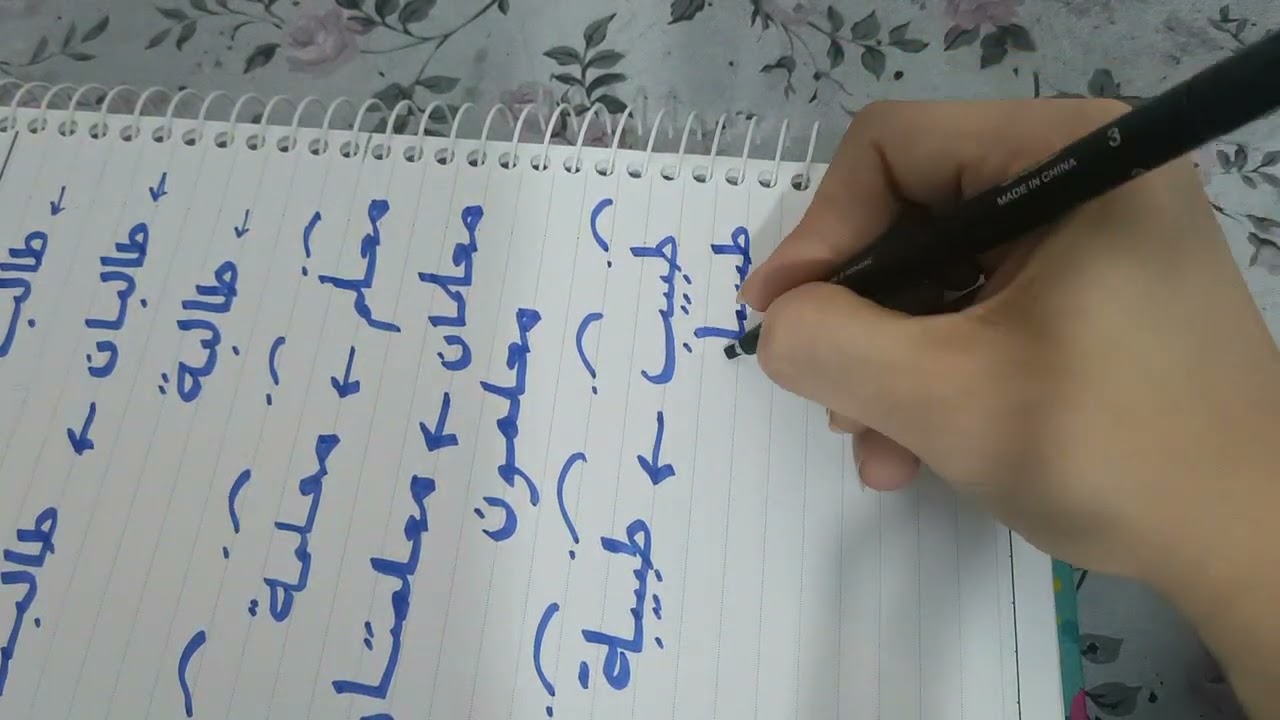 طالب
طالبان ←
طالبة
معلم ← معلمة
معلمان ←
معلمون
طبيب ← طبيبة
3
MADE IN CHINA